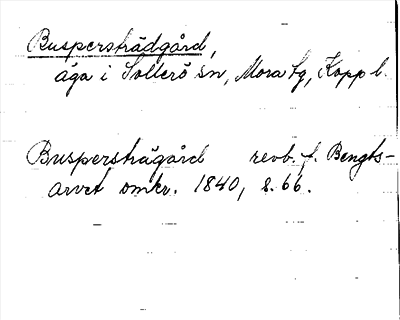 Buspersträdgård,
äga i Sollerö sn, Mora tg, Kopp l.
Busperstrãgård revb. f. Bengts-
arvet omkr. 1840, s. 66.